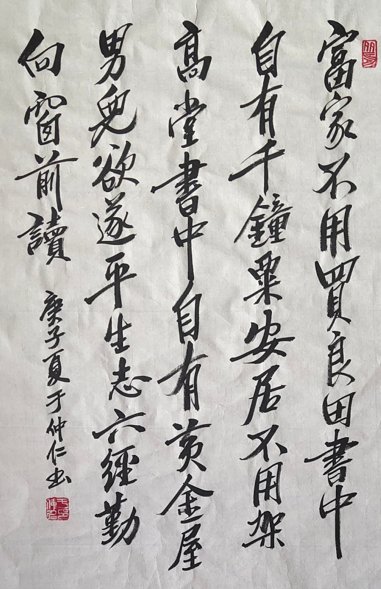 富家不用買良田書中
自有千鐘粟安居不用架
高堂書中自有黄金屋
男兒欲遂平生志六經勤
向窗前讀
庚子夏于仲仁书